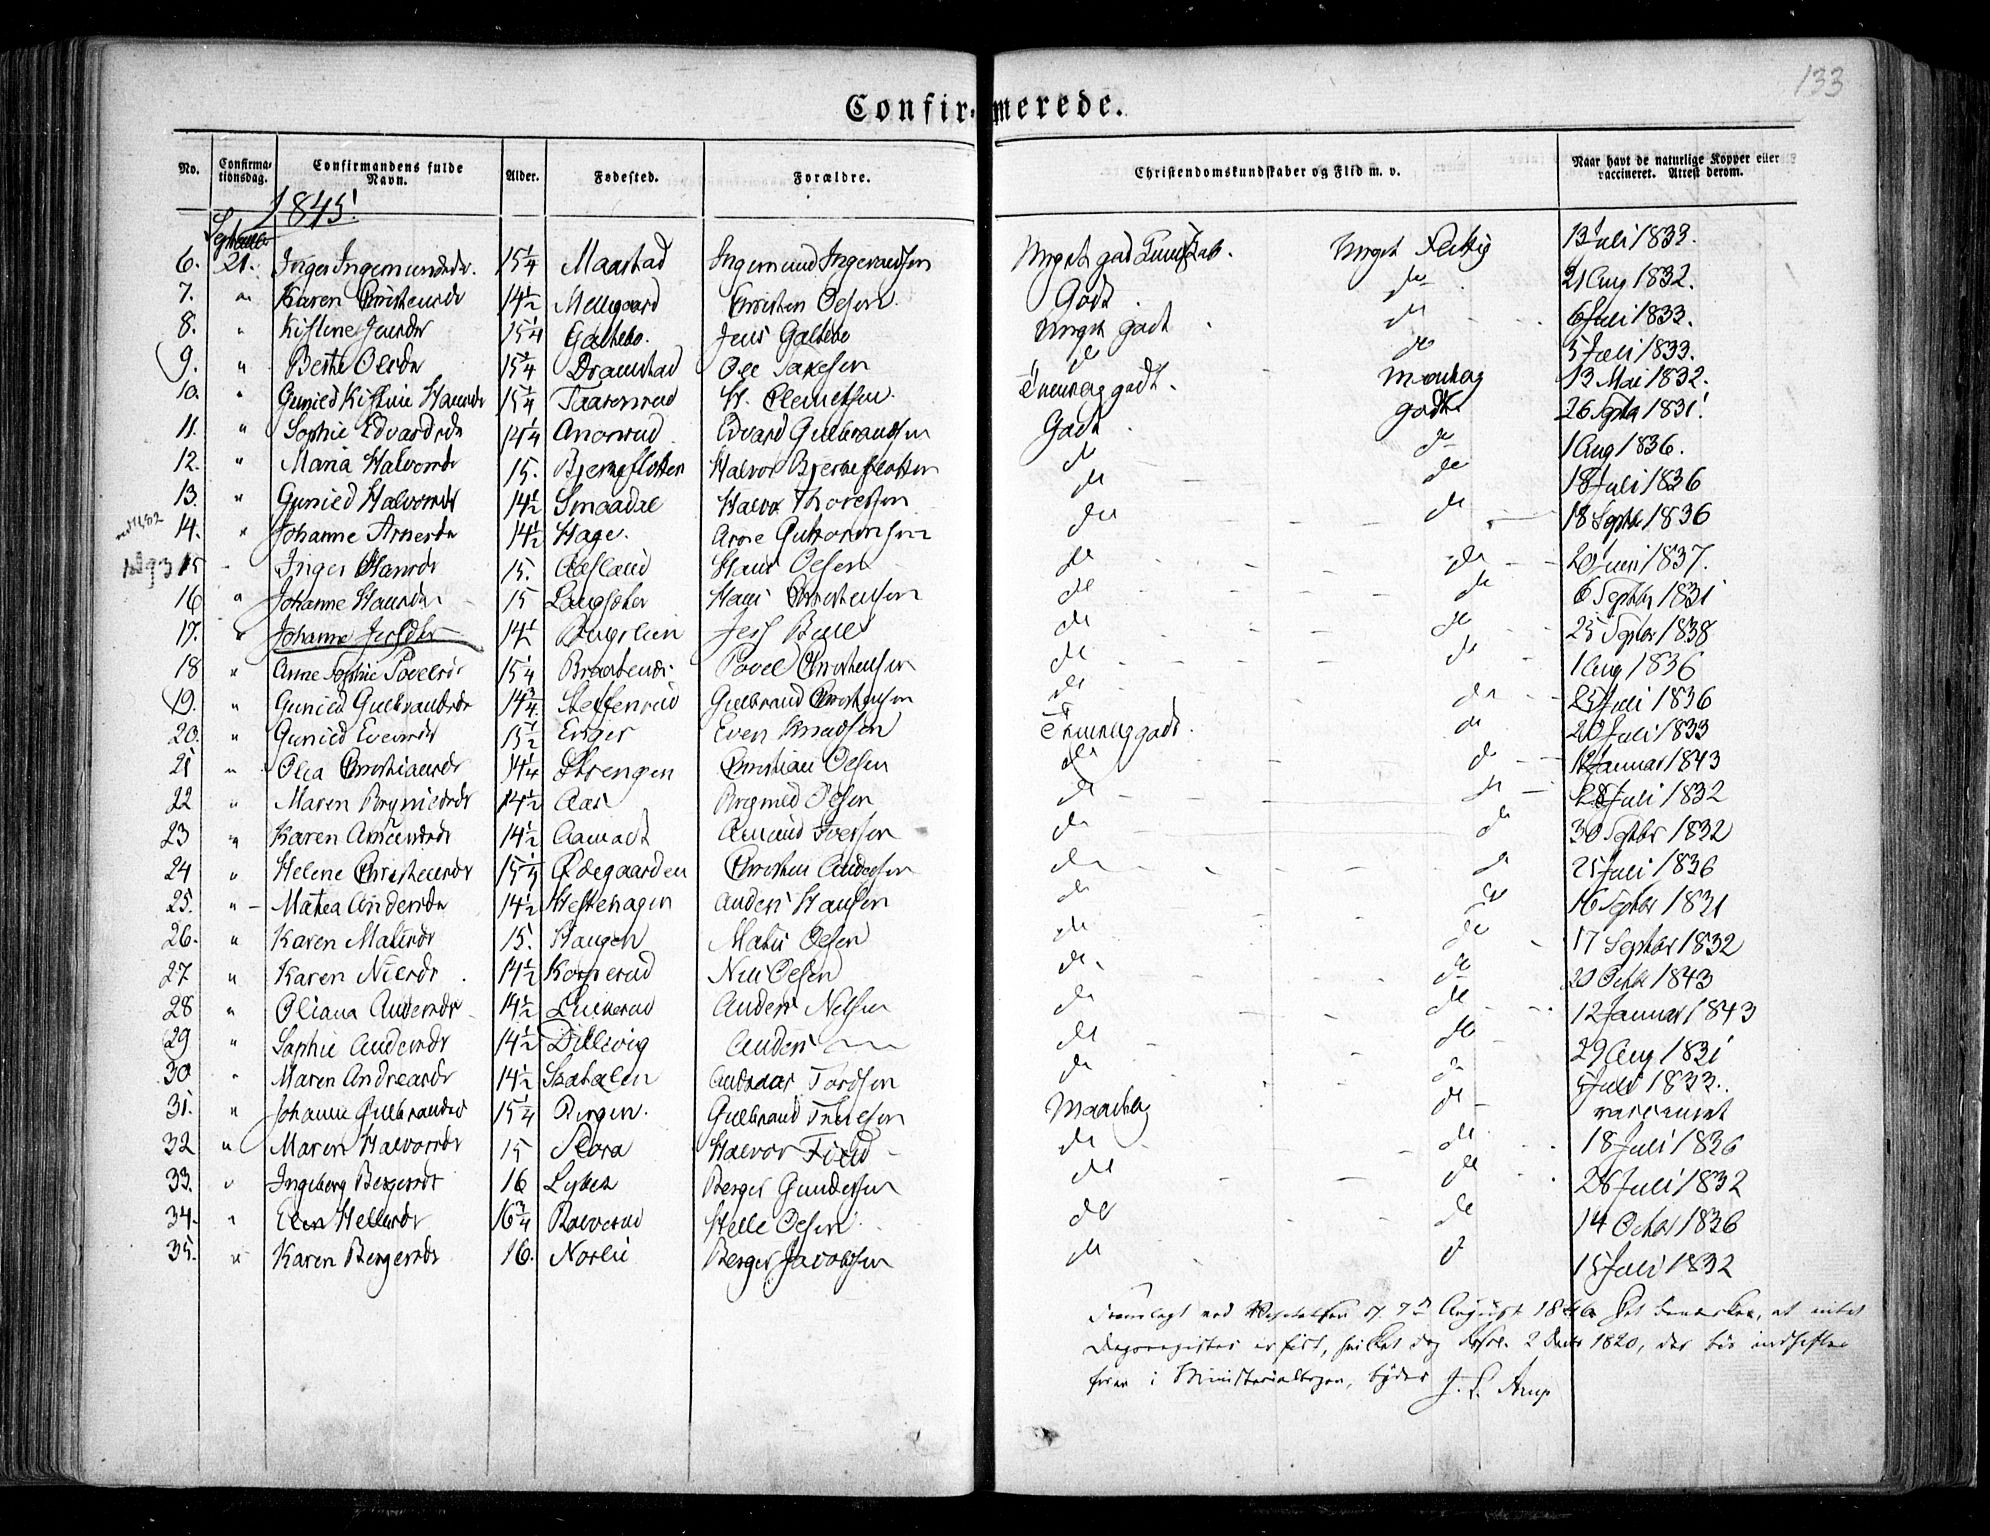 133
Confirmerede.
No. Confirmationsdag. Confirmandens fulde Navn. Alder. Fødested. Forældre. Christendomskundskaber og Flid m. v. Naar havt de naturlige Kopper eller vaccineret. Attest derom.
1845!
September
6. 21. Inger Ingemundsdr. 15 1/4 Maastad Ingemund Ingevaldsen Meget god Kundskab. Meget Flittig 13 Juli 1833.
7. " Karen Christensdr 14 1/2 Mellegaard Christen Olsen Godt. do 21 Aug 1832.
8. " Kistine Jensdr 15 1/4 Galtebo. Jens Galtebo Meget godt do 6 Juli 1833.
9. " Berthe Olesdr 15 1/4 Dramstad Ole Paxesen do do 5 Juli 1833.
10. " Gunild Kistine Hansdr 15 1/4 Taarenrud H. Clemetsen. Temmelig godt. 13 Mai 1832.
11. " Sophie Edvardsdr 14 1/4 Anonrud Edvard Gulbrandsen Godt. godt. 26 Septbr 1831!
12. " Maria Halvorsdr 15. Bjerneflotten Halvor Bjerneflotten do do 1 Aug 1836.
13. " Gunild Halvorsdr 14 1/2 Smaadal Halvor Thoresen do do 18 Juli 1836
14. " Johanne Arnesdr 14 1/2 Hage. Arne Guttormsen do do 18 Septbr 1836
15 " Inger Hansdr 15. Aasland Hans Olsen do do 20 Juni 1837.
16 " Johanne Hansdr 15 Langseter Hans Christensen do do 6 Septbr 1831
17. " Johanne Jessdtr 14 1/2 Jess do do 25 Septbr 1838
18 " Anne Sophie Povelsdr 15 1/4 Braatenes Povel Christensen do do 1 Aug 1836
19. " Gunild Gulbrandsdr 14 3/4 Steffenrud Gulbrand Christensen do do 25 Juli 1836
20. " Gunild Evensdr 15 1/2 Enger Even Knudsen Temmelig godt. do 20 Juli 1833
21 " Olea Christiansdr 14 1/4 Strengen Christian Olsen do do 12 Januar 1843
22 " Maren Brynildsdr 14 1/2 Aas Brynild Olsen do do 28 Juli 1832
23 " Karen Amundsdr 14 1/2 Aamodt Amund Iversen do do 30 Septbr 1832
24 " Helene Christensdr 15 1/4 Ødegaarden Christen Andersen do do 25 Juli 1836
25. " Mathea Andersdr 14 1/2 Hestehagen Anders Hansen do do 16 Septbr 1831
26. " Karen Matisdr 15. Haugen Matis Olsen do do 17 Septbr 1832
27. " Karen Nilsdr. 14 1/2 Kopperud Nils Olsen do do 20 Octbr 1843
28 " Oliana Andersdr 14 1/2 Anders Nelsen do do 12 Januar 1843
29 " Sophie Andersdr 14 1/2 Dillevig Anders do do 29 Aug 1831
30 " Maren Andreasdr 14 1/2 Skatalen Andreas Tordsen do do 5 Juli 1833.
31. " Johanne Gulbrandsdr 15 1/4 Bergen. Gulbrand Maadelig do vaccineret
32 " Maren Halvorsdr 15 Flora Halvor do do 18 Juli 1836
33. " Ingeborg Bergersdr 16 Lybek Berger Gundersen do do 28 Juli 1832
34. " Elen Hellesdr 16 3/4 Helle Olsen do do 14 Octbr 1836
35. " Karen Bergersdr 16. Norlie Berger Jacobsen do do 15 Juli 1832
Fremlagt ved Visitatsen d. 7de August 1846. Det bemærkes, at intet
Dagsregister er ført, hvilket dog Resol. 2 Decbr 1820, der bør indheftes
foran i Ministerialbogen, byder J. L. Arup